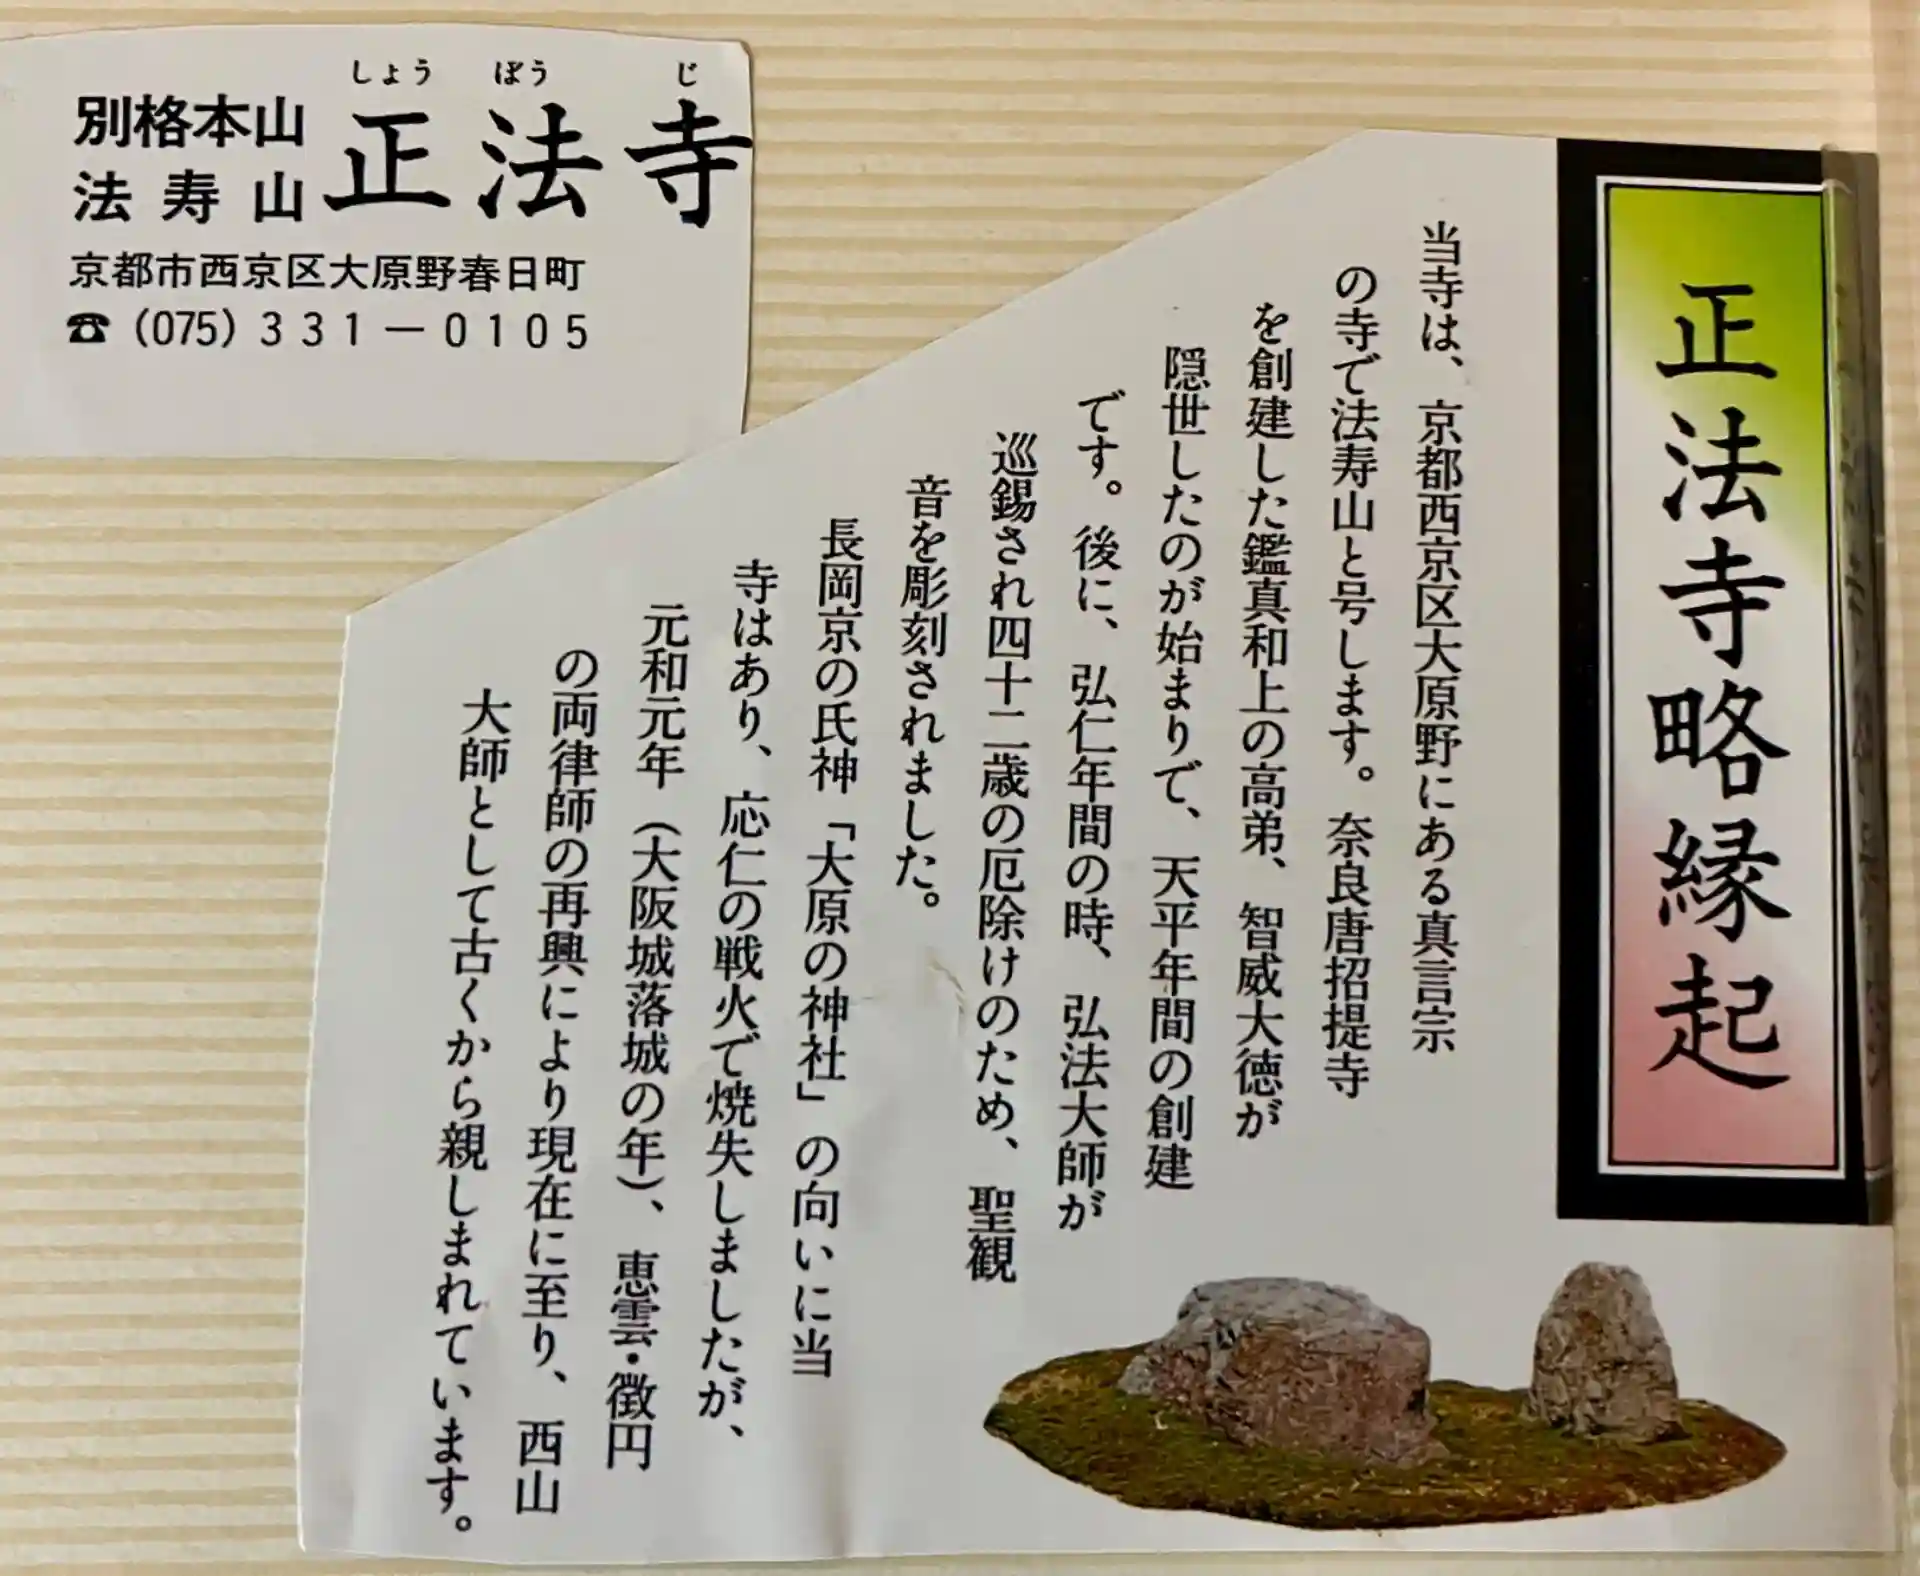 別格本山
法寿山
しょうぼうじ
正法寺
京都市西京区大原野春日町
☎(075)331－0105
正法寺略縁起
当寺は、京都西京区大原野にある真言宗
の寺で法寿山と号します。奈良唐招提寺
を創建した鑑真和上の高弟、智威大徳が
隠世したのが始まりで、天平年間の創建
です。後に、弘仁年間の時、弘法大師が
巡錫され四十二歳の厄除けのため、聖観
音を彫刻されました。
長岡京の氏神「大原の神社」の向いに当
寺はあり、応仁の戦火で焼失しましたが、
元和元年（大阪城落城の年）、恵雲・徴円
の両律師の再興により現在に至り、西山
大師として古くから親しまれています。